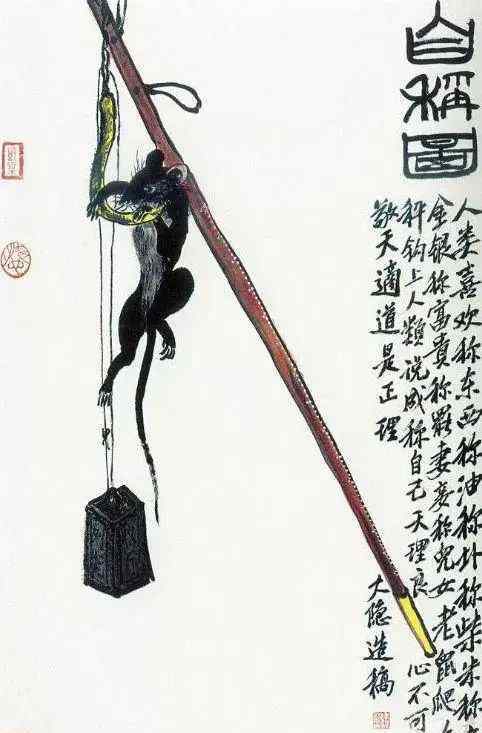 自稱圖
人类喜欢称东西称油称称柴米称
金银称富貴称罢妻妾称儿女老鼠爬
秤钩上人類说成称自己天理良心不可
天適道是正理
大隐造稿